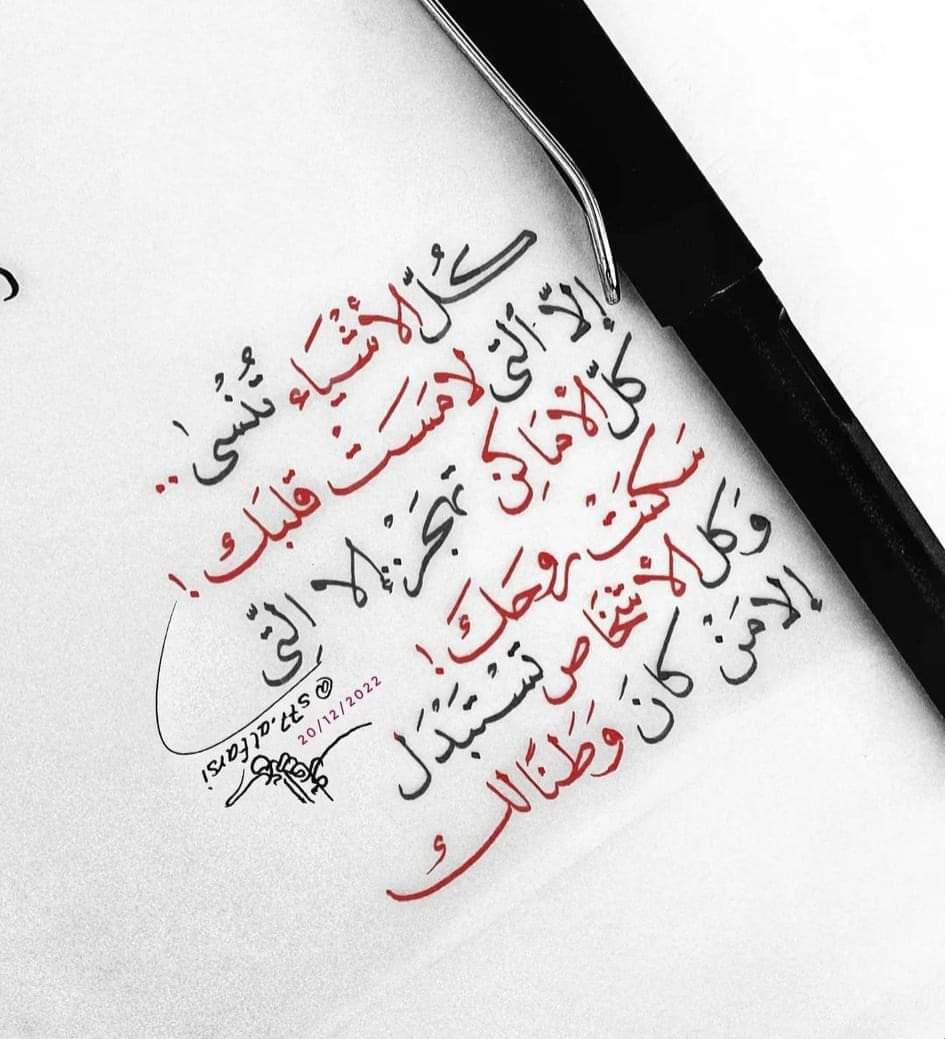 كُلّ الأشْيَاء تُنْسى ..
إلّا ألتى لامَسَتْ قلبَك !
كلّ الأمَاكِن تهجَرْ إلا الّتِى
سَكنَتْ روحَكَ !
وَكل الأشخَاص تسْتبَدَل
إلا مَنْ كانَ وَطَنًا لك
@s77.alfarsi
20/12/2022